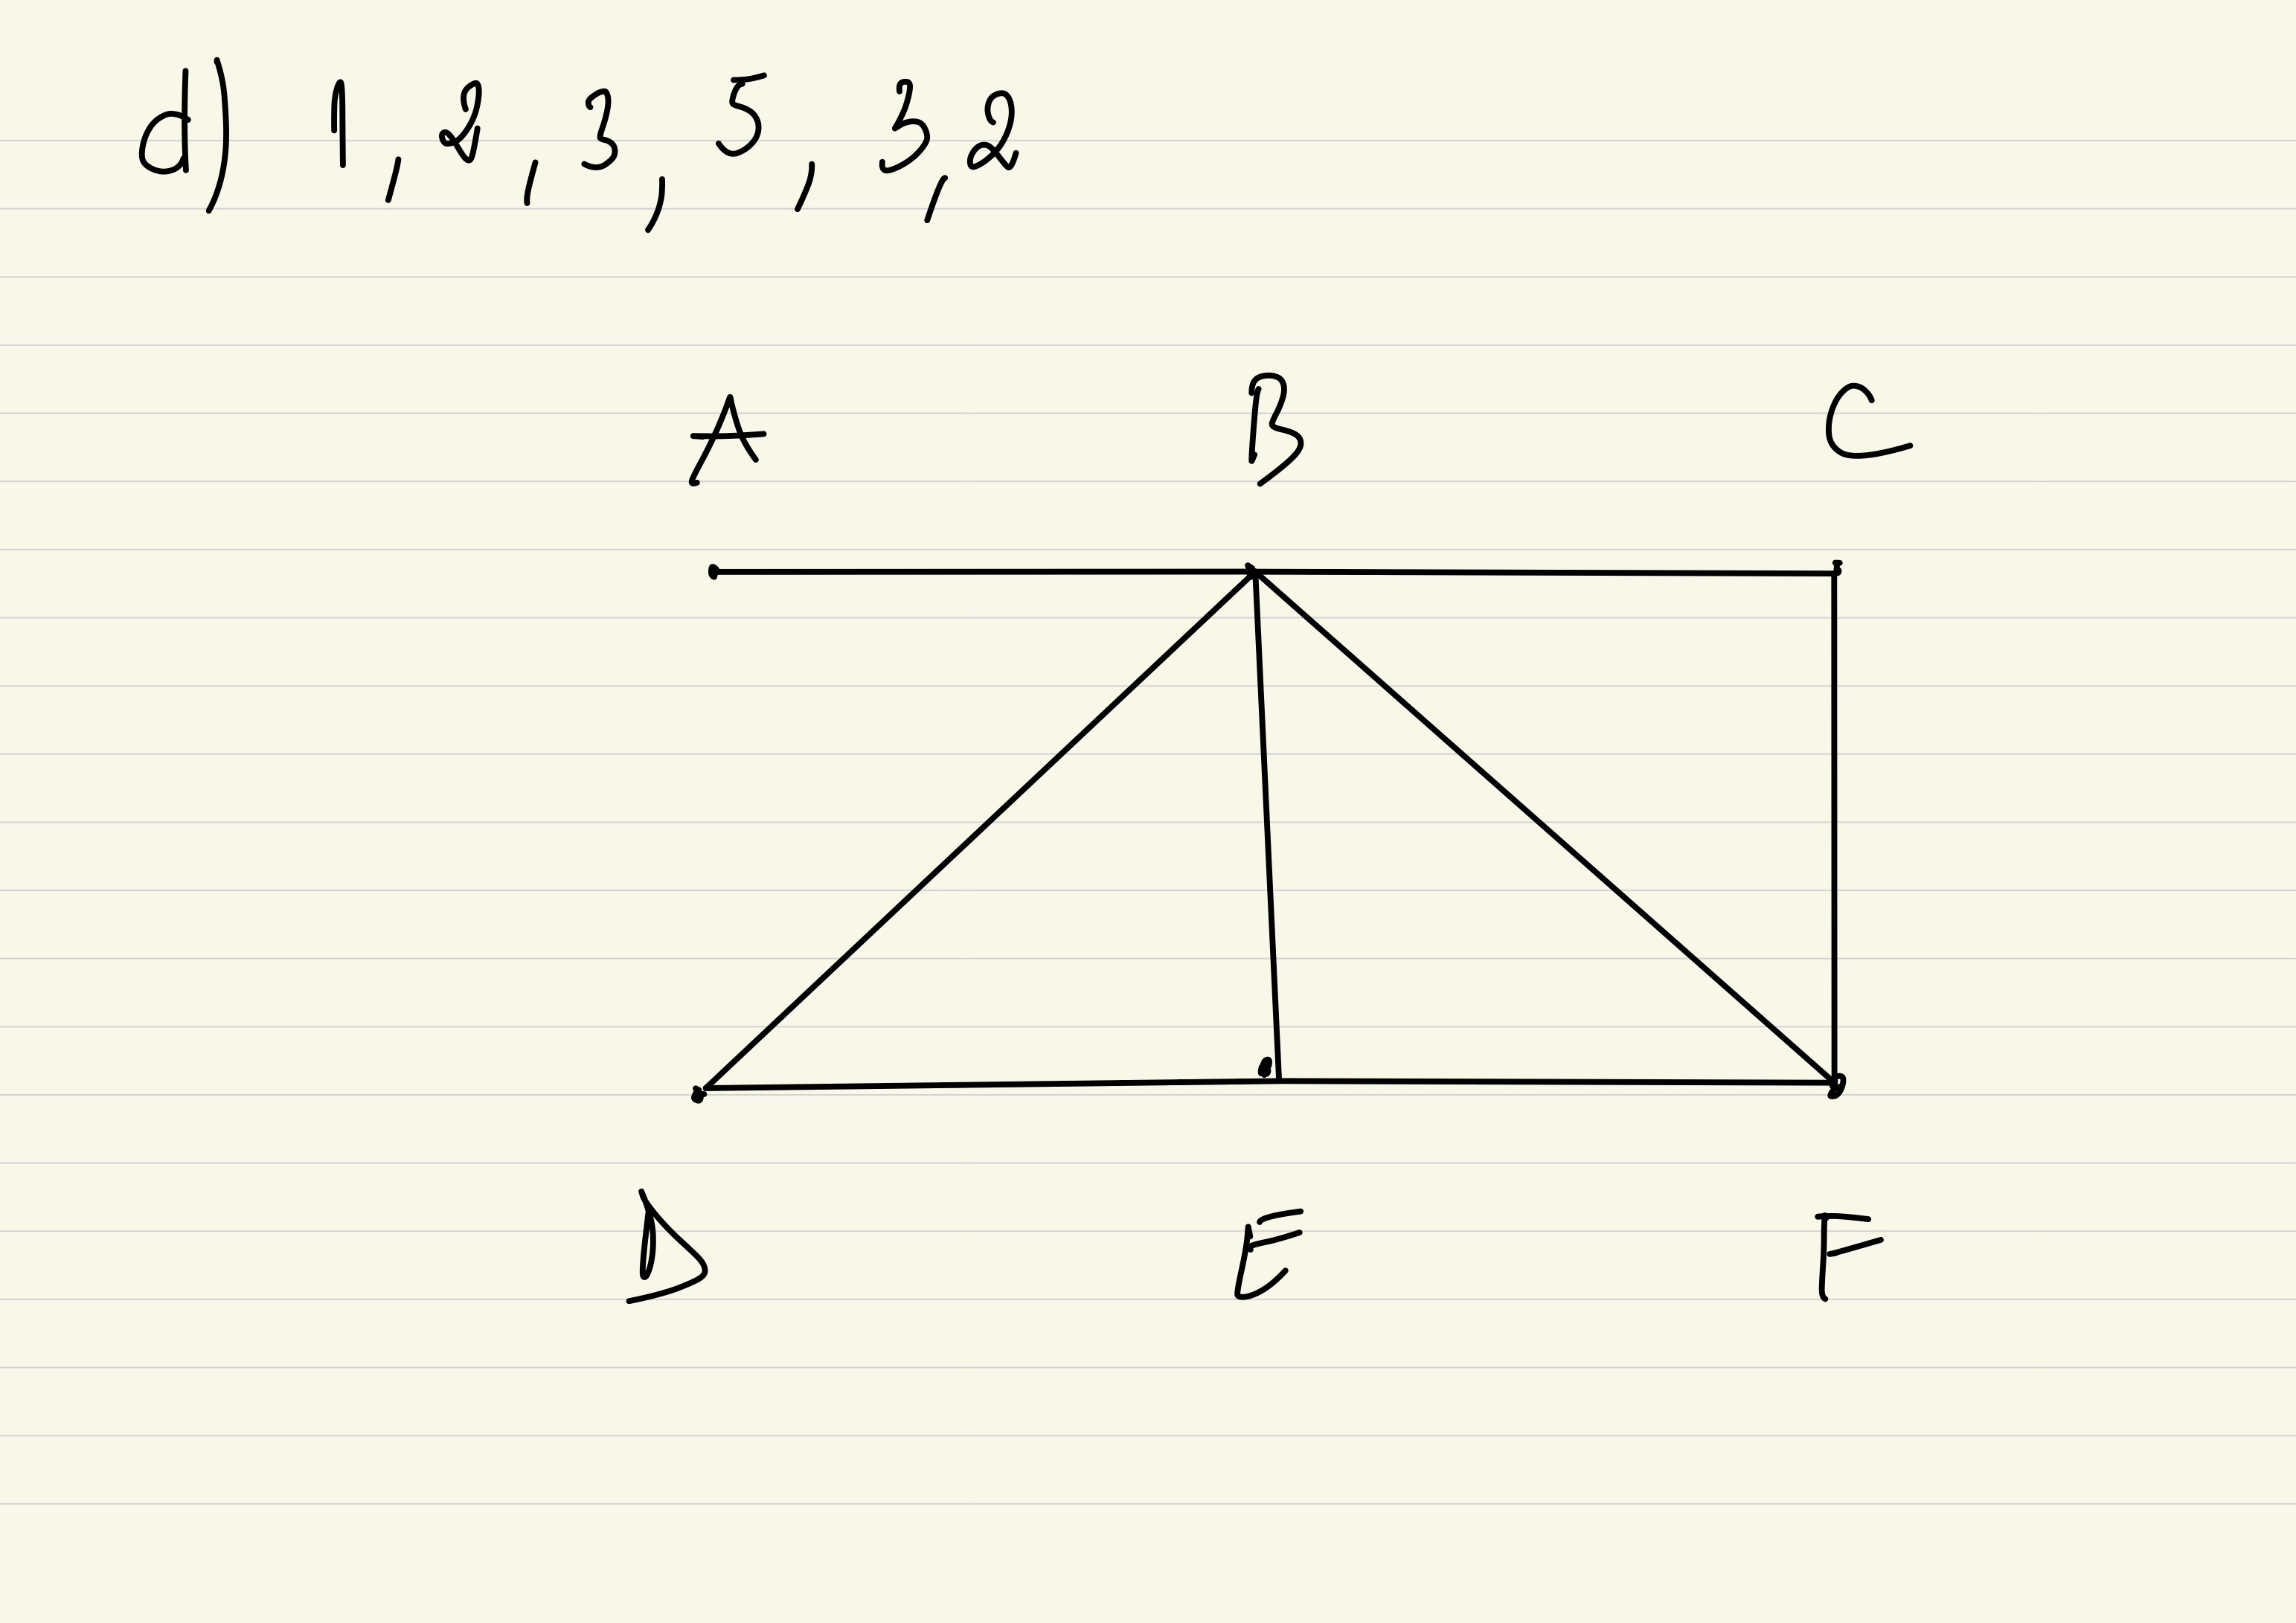 d) 1, 2, 3, 5, 3, 2
A B C
D E F